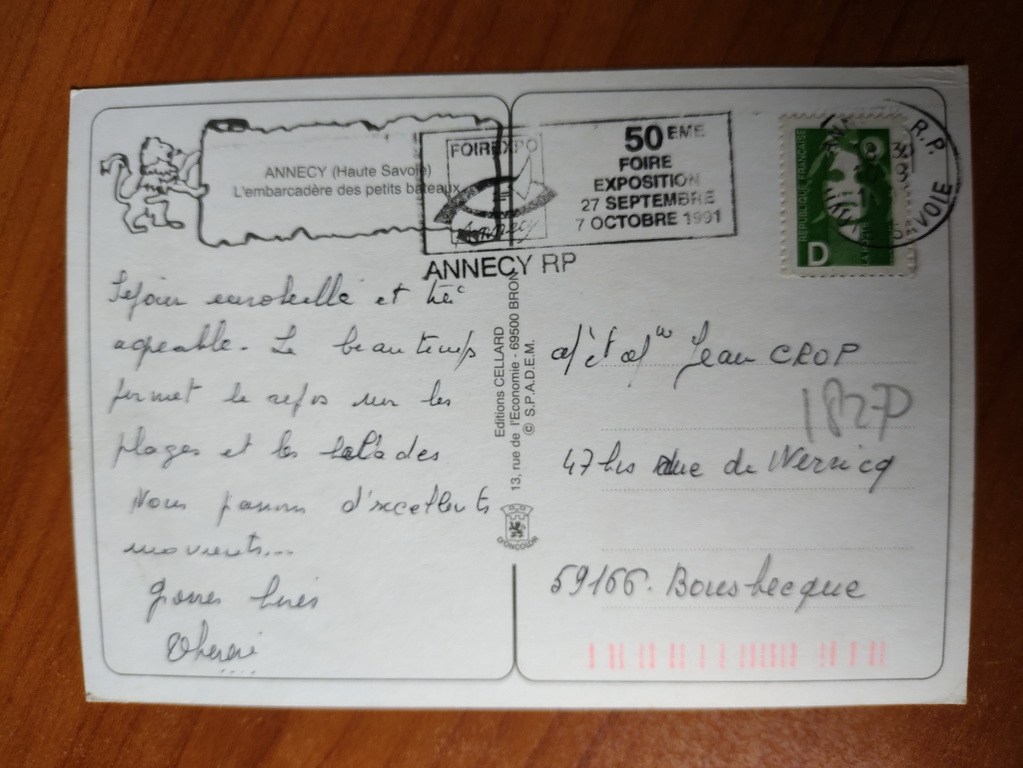 ANNECY (Haute Savoie)
L'embarcadère des petits bateaux
FOIREXPO
Annecy
50 EME
FOIRE
EXPOSITION
27 SEPTEMBRE
7 OCTOBRE 1991
ANNECY RP
REPUBLIQUE FRANÇAISE
D
LA POSTE
R.P.
SAVOIE
Séjour ensoleillé et très
agréable. Le beau temps
permet le repos sur les
plages et les balades
Nous passons d'excellents
moments...
grosses bises
Editions CELLARD
13, rue de l'Economie - 69500 BRON
© S.P.A.D.E.M.
Jean CROP
47 bis rue de Wervicq
59166. Bousbecque